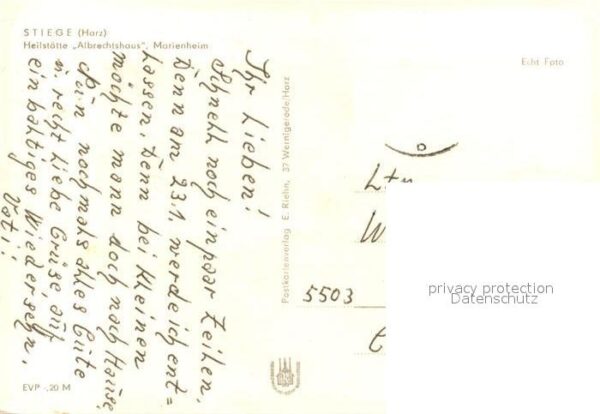 STIEGE (Harz)
Heilstätte „Albrechtshaus", Marienheim
Echt Foto
Ihr Lieben!
Schnell noch ein paar Zeihen,
Denn am 23.1. werde ich ent=
Lassen. Denn bei Kleinen
möchte mann doch nach Hause.
Nun nochmals alles Gute
u. recht Liebe Grüse auf
ein baltiges Wiedersehn.
Vati!
Postkartenverlag E. Riehn, 37 Wernigerode/Harz
5503
privacy protection
Datenschutz
EVP -,20 M